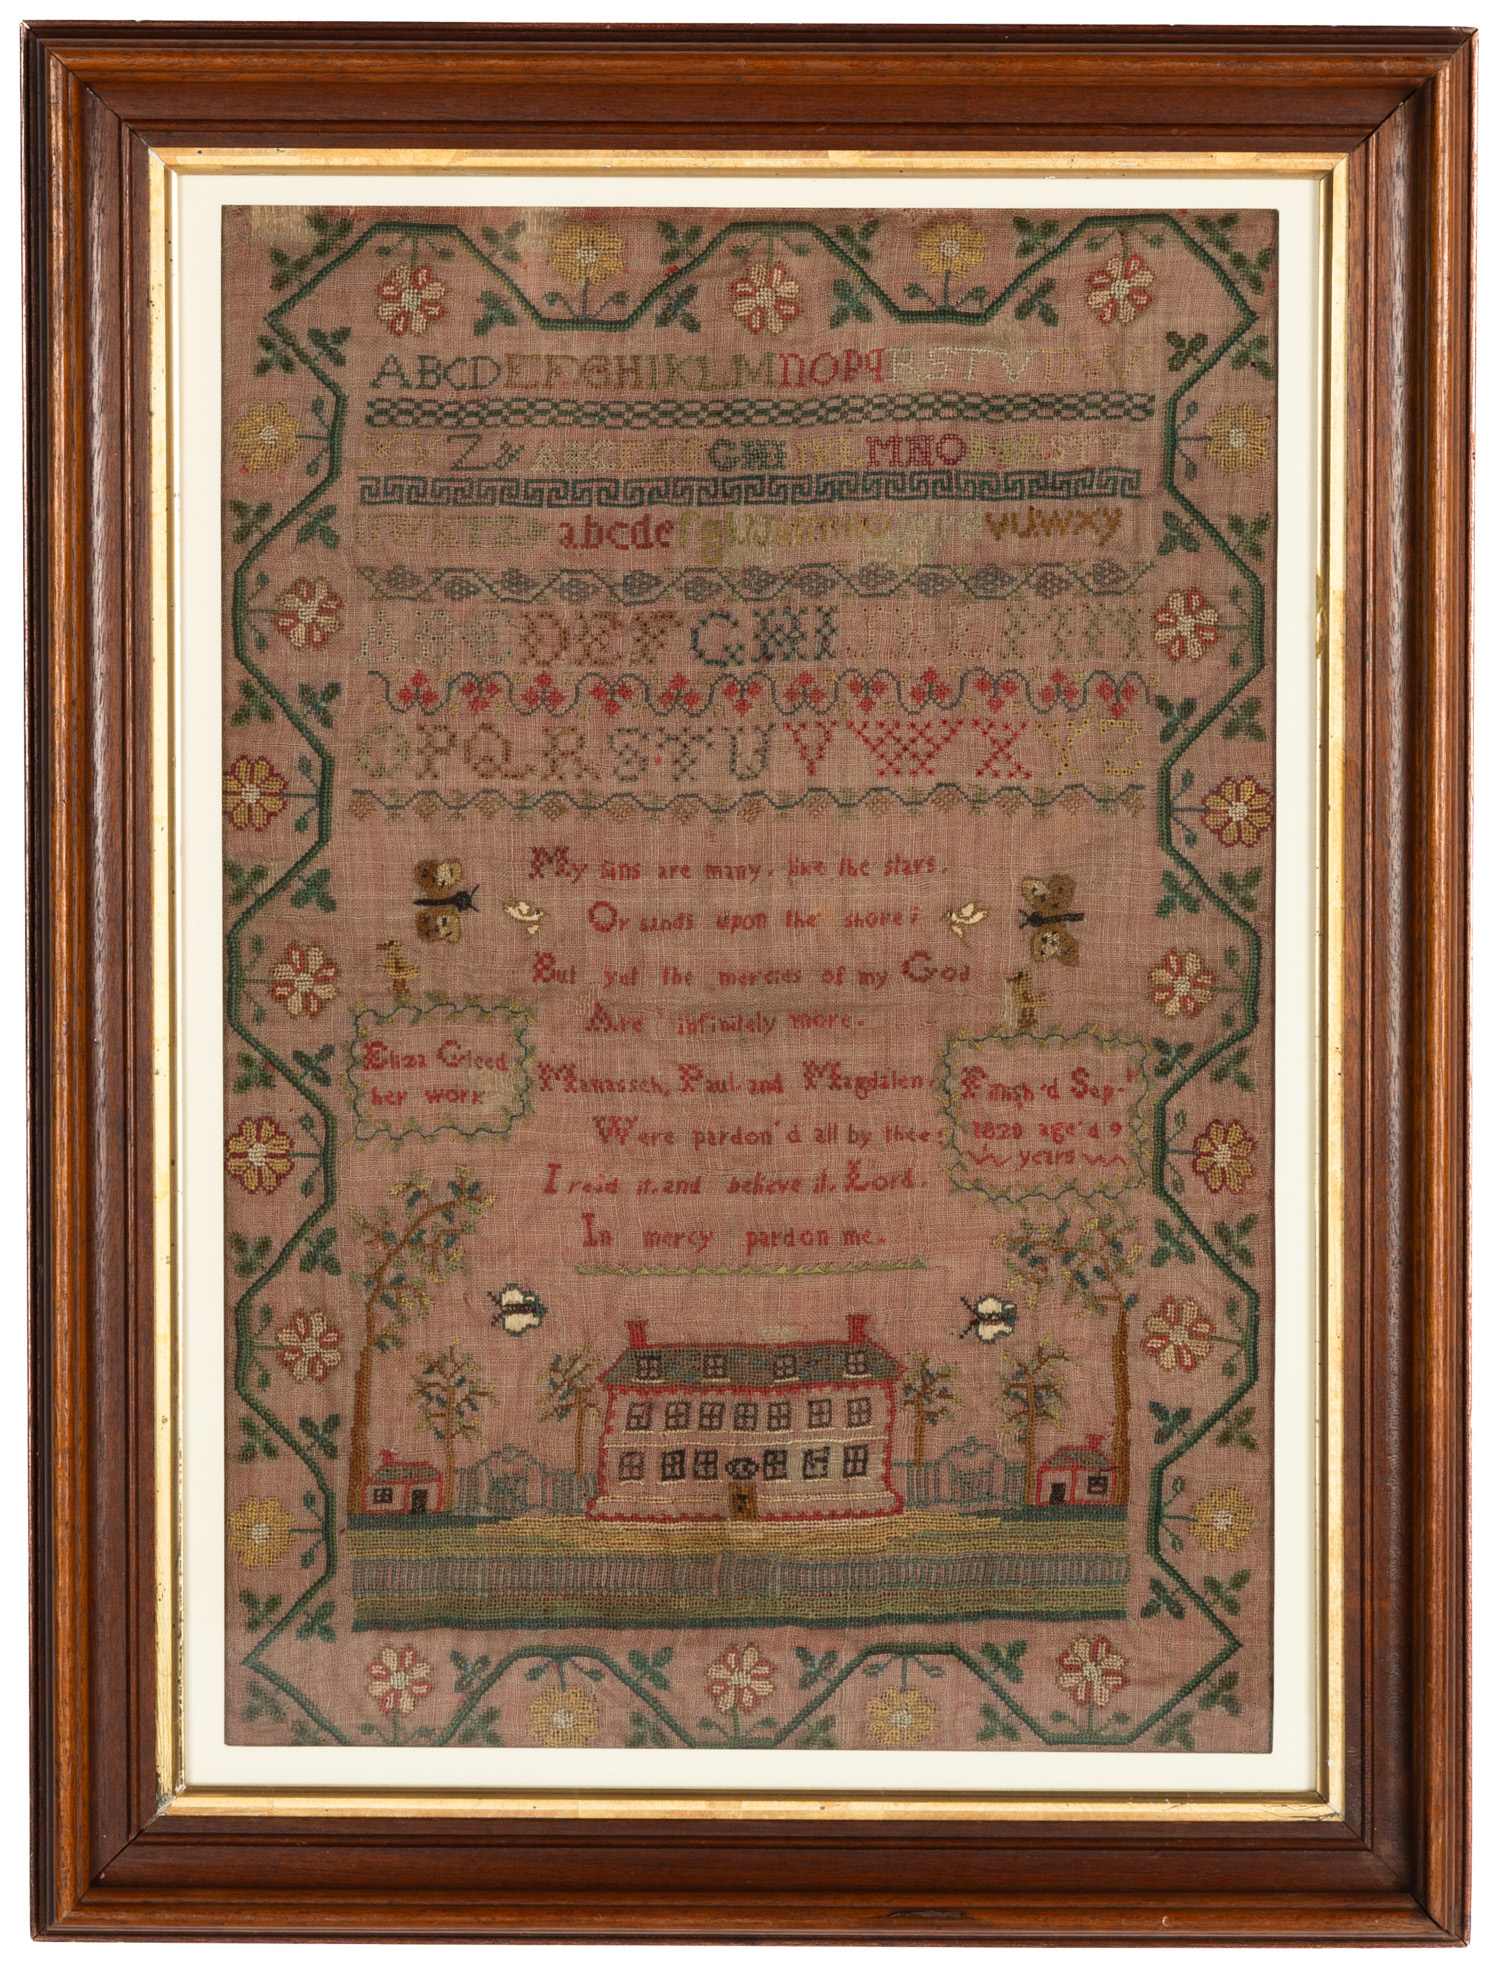 ABCDEFGHIKLMNOPqRSTVUW
XYZ& ABCDEFGHIJKLMNOPQRSTV
UWXYZ& abcdefg vuwxy
ABCDEFGHIJKLMN
OPQRSTUVWXYZ
My sins are many, like the stars,
Or sands upon the shore;
But yet the mercies of my God
Are infinitely more.
Eliza Gleed
her work
Manasseh, Paul and Magdalen,
Were pardon'd all by thee;
I read it, and believe it, Lord,
In mercy pardon me.
Finish'd Sepr
1820 age'd 9
years